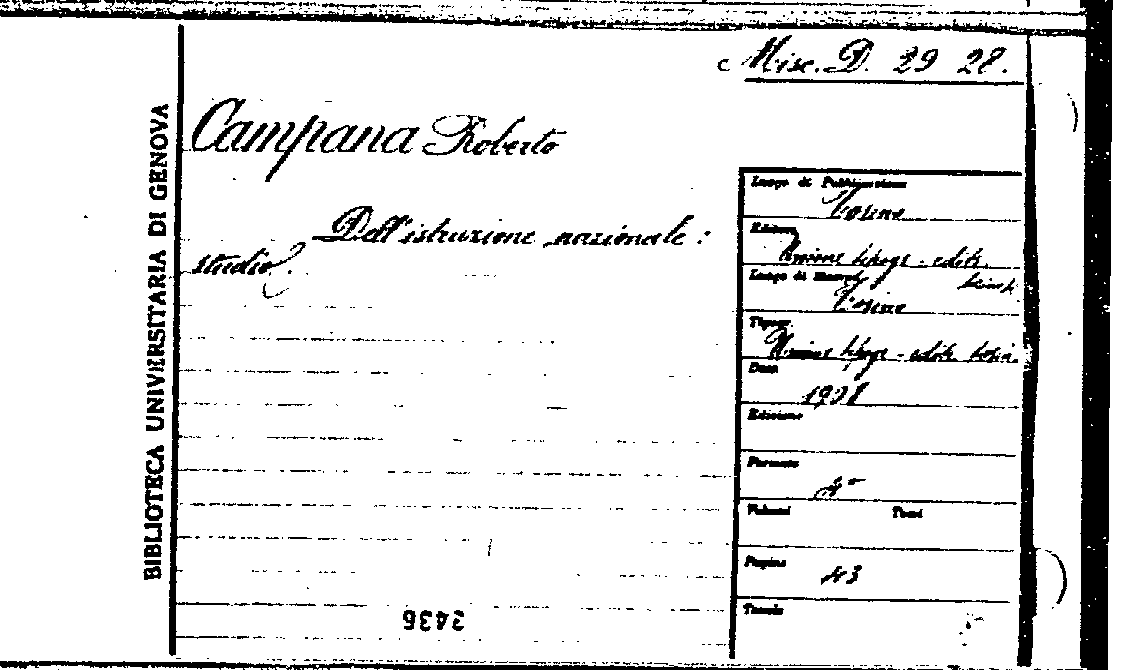 Misc. D. 29 28.
BIBLIOTECA UNIVERSITARIA DI GENOVA
Campana Roberto
Dell'istruzione nazionale:
studio.
Luogo di Pubblicazione
Torino
Editore
Unione tipogr-edit.
torin.
Luogo di Stampa
Torino
Tipogr.
Unione tipogr-edit. torin.
Data
Edizione
Formato
Volumi Tomi
Pagine
43
Tavole
2436